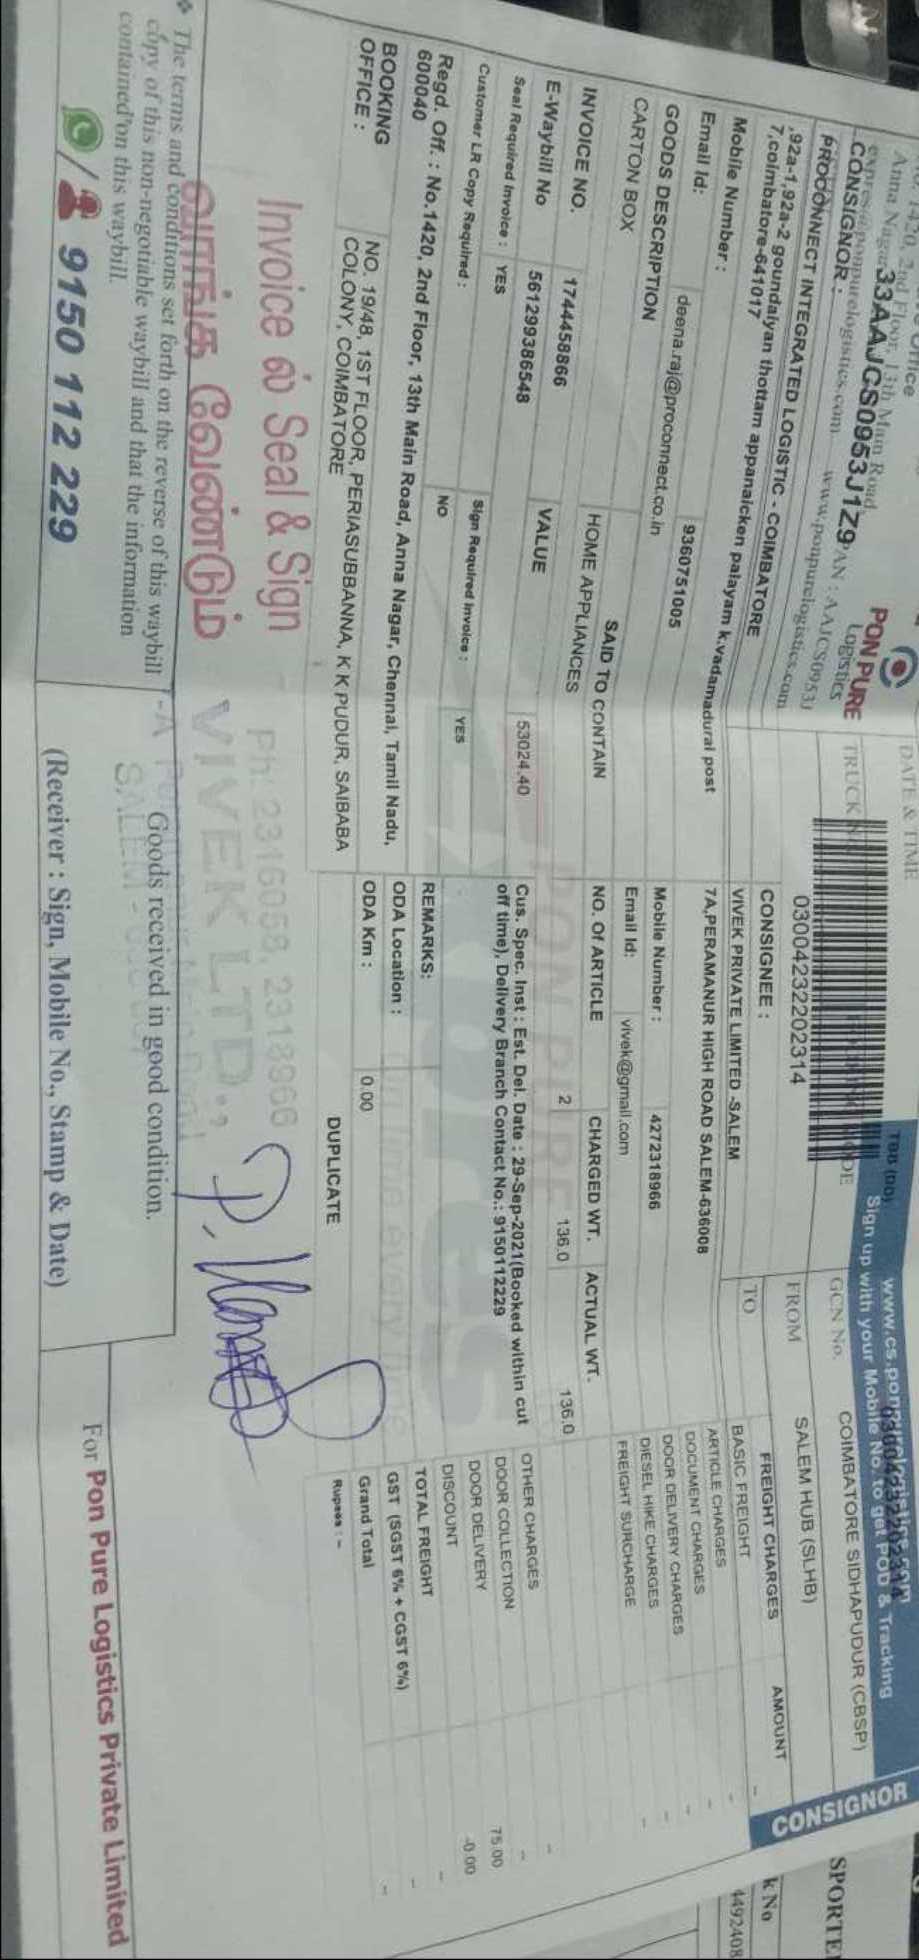 Office
1420, 2nd Floor, 13th Main Road,
Anna Nagar
33AAJCS0953J1Z9 PAN : AAJCS0953J
www.ponpurelogistics.com
PON PURE
Logistics
CONSIGNOR :
PROCONNECT INTEGRATED LOGISTIC - COIMBATORE
,92a-1,92a-2 goundaiyan thottam appanaicken palayam k.vadamadurai post
7,coimbatore-641017
Mobile Number : 9360751005
Email Id: deena.raj@proconnect.co.in
GOODS DESCRIPTION SAID TO CONTAIN
CARTON BOX HOME APPLIANCES
INVOICE NO. 1744458866 VALUE 53024.40
E-Waybill No 561299386548
Seal Required Invoice : YES Sign Required Invoice : YES
Customer LR Copy Required : NO
Regd. Off. : No.1420, 2nd Floor, 13th Main Road, Anna Nagar, Chennai, Tamil Nadu,
600040
BOOKING OFFICE : NO, 19/48, 1ST FLOOR, PERIASUBBANNA, K K PUDUR, SAIBABA
COLONY, COIMBATORE
DATE & TIME
TRUCK
03004232202314
CONSIGNEE :
VIVEK PRIVATE LIMITED -SALEM
7A,PERAMANUR HIGH ROAD SALEM-636008
Mobile Number : 4272318966
Email Id: vivek@gmail.com
NO. Of ARTICLE CHARGED WT. ACTUAL WT.
2 136.0 136.0
Cus. Spec. Inst : Est. Del. Date : 29-Sep-2021(Booked within cut
off time), Delivery Branch Contact No.: 9150112229
REMARKS:
ODA Location :
ODA Km : 0.00
DUPLICATE
TBB (DD)
Sign up with your Mobile No. to get POD & Tracking
GCN No. 03004232202314
COIMBATORE SIDHAPUDUR (CBSP)
FROM SALEM HUB (SLHB)
TO
CONSIGNOR
FREIGHT CHARGES AMOUNT
BASIC FREIGHT -
ARTICLE CHARGES -
DOCUMENT CHARGES -
DOOR DELIVERY CHARGES -
DIESEL HIKE CHARGES -
FREIGHT SURCHARGE
OTHER CHARGES -
DOOR COLLECTION -
DOOR DELIVERY 75.00
DISCOUNT -0.00
TOTAL FREIGHT -
GST (SGST 6% + CGST 6%) -
Grand Total -
Rupees : -
Invoice ல் Seal & Sign
வாங்க வேண்டும்
Ph: 2316058, 2318966
VIVEK LTD.,
SALEM -
The terms and conditions set forth on the reverse of this waybill
copy of this non-negotiable waybill and that the information
contained on this waybill.
9150 112 229
Goods received in good condition.
(Receiver : Sign, Mobile No., Stamp & Date)
For Pon Pure Logistics Private Limited
SPORTE
k No
4492408